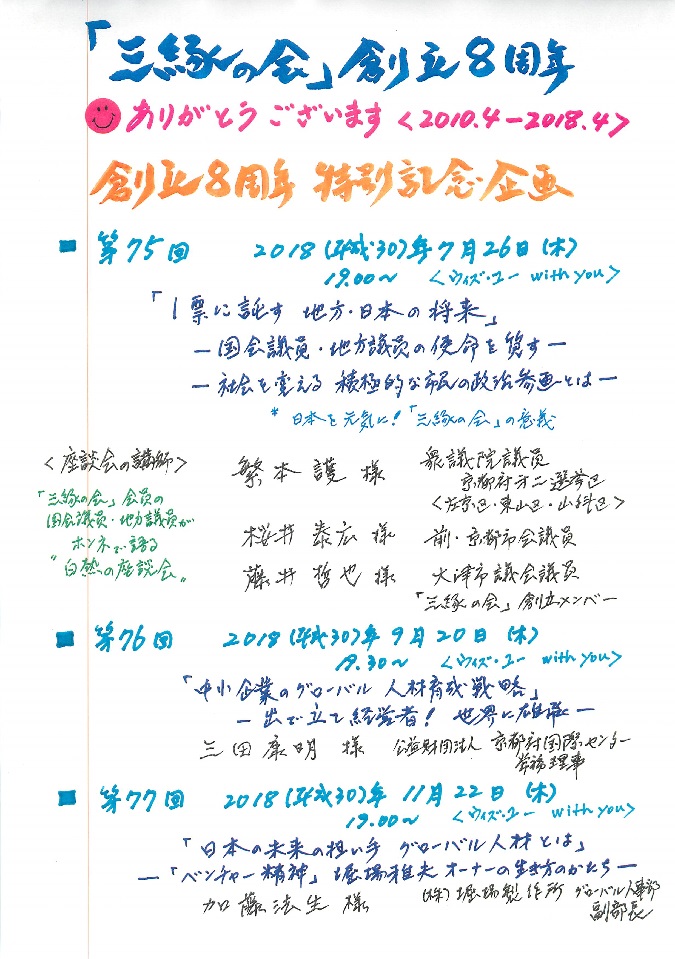 「三縁の会」創立8周年
ありがとうございます<2010.4-2018.4>
創立8周年 特別記念企画
第75回 2018(平成30)年7月26日(木)
19.00〜 <ウィズ・ユー with you>
「1票に託す 地方・日本の将来」
-国会議員・地方議員の使命を質す-
-社会を変える 積極的な市民の政治参画とは-
* 日本を元気に!「三縁の会」の意義
<座談会の講師>
「三縁の会」会員の
国会議員・地方議員が
ホンネで語る
"白熱の座談会"
繁本 護 様 衆議院議員
京都府才二選挙区
<左京区・東山区・山科区>
桜井 泰広 様 前・京都市会議員
藤井 哲也 様 大津市議会議員
「三縁の会」創立メンバー
第76回 2018(平成30)年9月20日(木)
19.30〜 <ウィズ・ユー with you>
「中小企業のグローバル 人材育成戦略」
-出で立て経営者! 世界に雄飛-
三田 康明 様 公益財団法人 京都府国際センター
常務理事
第77回 2018(平成30)年 11月22日(木)
19.00〜 <ウィズ・ユー with you>
「日本の未来の担い手 グローバル人材とは」
-「ベンチャー精神」堀場雅夫 オーナーの生き方のかたち-
加藤 法生 様 (株)堀場製作所 グローバル人事部
副部長